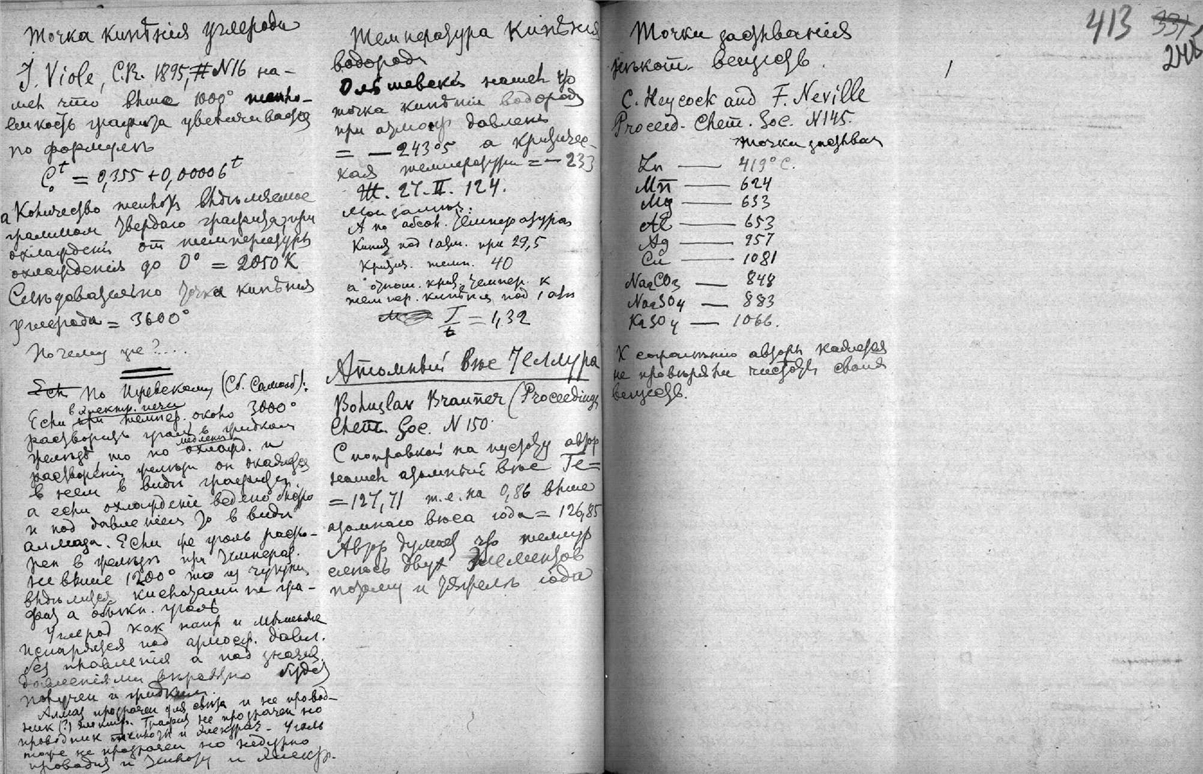 Точка кипѣнія углерода
J. Viole, C.R. 1895, # N16 на-
шел что выше 1000° тепло-
емкость графита увеличивается
по формулѣ
C₀ᵗ = 0,355 + 0,00006ᵗ
а Количество теплоты выдѣляемое
граммом твердаго графита при
охлажденіи от температуры
охлажденія до 0° = 2050 К
Слѣдовательно точка кипѣнія
углерода = 3600°
Почему же?....
По (Сб. ):
Если в электр. печи
при темпер. около 3000°
растворить уголь в жидком
желѣзѣ то по медленн. охлажд. и
раствореніи желѣза он окажется
в нем в видѣ графита,
а если охлажденіе ведено скоро
и под давленіем то в видѣ
алмаза. Если же уголь раство-
рен в желѣзѣ при температ.
не выше 1200° то из чугуна
выдѣлится кислотами не гра-
фит а обыкн. уголь
Углерод как напр и мышьяк
испаряется под атмосф. давл.
без плавленія а под
давленіями вѣроятно будет
получен и жидким
Алмаз прозрачен для свѣта и не провод-
ник (?) электр. Графит не прозрачен но
проводник теплоты и электр. Уголь
тоже не прозрачен но недурно
проводит и теплоту и электр.
Температура Кипѣнія
водорода
Ольшевскій нашел что
точка кипѣнія водорода
при атмосф давлень
= — 243°5 а критичес-
кая температура = — 233
Ж. 27. II. 124.
А по абсол. температура
Кипѣн. под 1 атм. при 29,5
Критич. темп. 40
а относ. крит. темпер. к
темпер. кипѣнія под 1 атм
T/t = 1,32
Атомный вѣс Теллура
Bohuslav Brauner (Proceedings
Chem. Soc. N 150.
С поправкой на пустоту автор
нашел атомный вѣс Te =
= 127,71 т.е. на 0,86 выше
атомнаго вѣса іода = 126,85
Автор думает что теллур
смѣсь двух элементов
потому и тяжелѣе іода
Точки застыванія
нѣкот. веществ.
C. Heycock and F. Neville
Proceed. Chem. Soc. N145.
точки застыван
Zn — 419° C.
624
Mg — 653
Al — 653
Ag — 957
Cu — 1081
Na₂CO₃ — 848
Na₂SO₄ — 883
K₂SO₄ — 1066.
К сожалѣнію авторы кажется
не провѣряли чистоту своих
веществ.
413 331